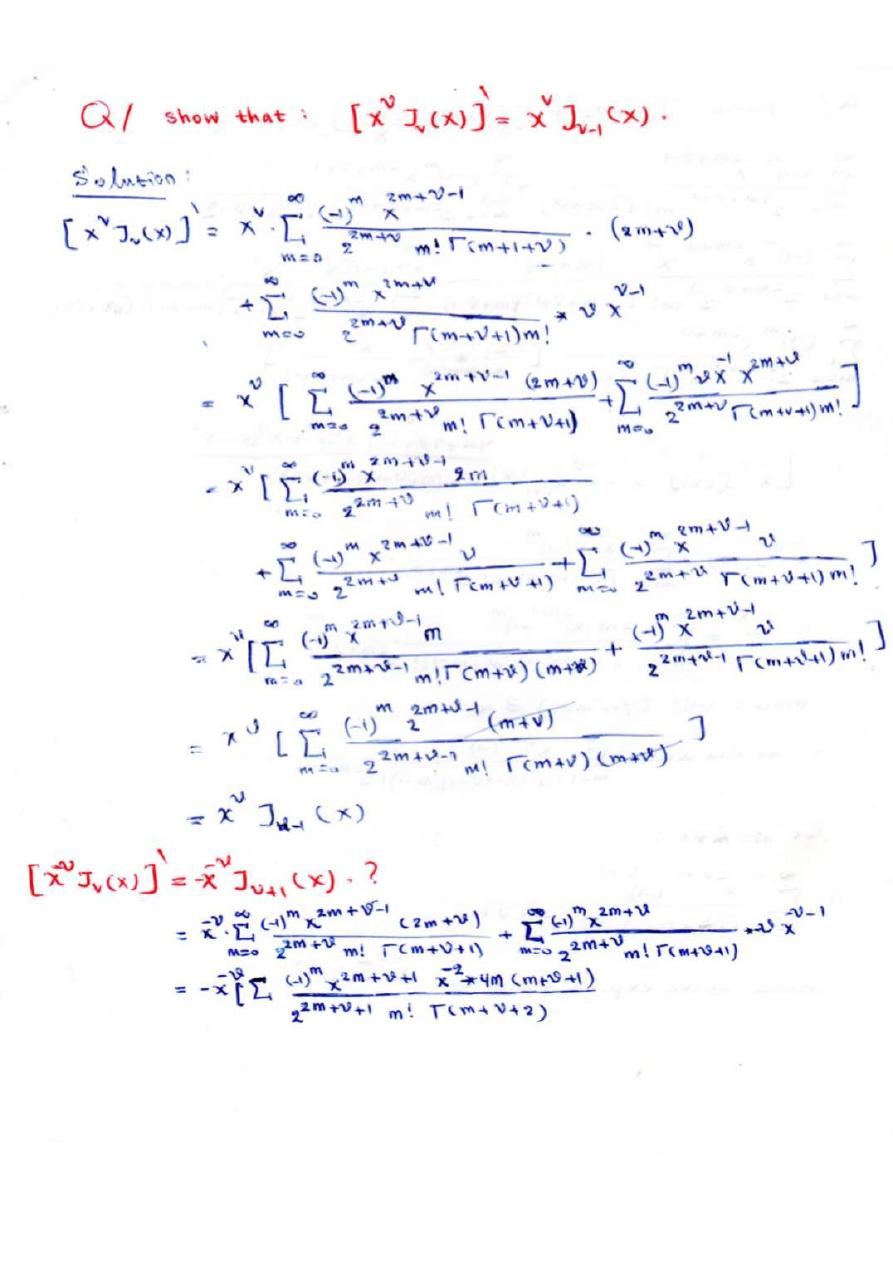 Q/ show that : [x^ν J_ν(x)]' = x^ν J_ν-1 (x) .
Solution :
[x^ν J_ν(x)]' = x^ν . Σ_{m=0}^∞ (-1)^m x^{2m+ν-1} / 2^{2m+ν} m! Γ(m+1+ν) . (2m+ν)
+ Σ_{m=0}^∞ (-1)^m x^{2m+ν} / 2^{2m+ν} Γ(m+ν+1) m! * ν x^{ν-1}
= x^ν [ Σ_{m=0}^∞ (-1)^m x^{2m+ν-1} (2m+ν) / 2^{2m+ν} m! Γ(m+ν+1) + Σ_{m=0}^∞ (-1)^m ν x^{-1} x^{2m+ν} / 2^{2m+ν} Γ(m+ν+1) m! ]
= x^ν [ Σ_{m=0}^∞ (-1)^m x^{2m+ν-1} 2m / 2^{2m+ν} m! Γ(m+ν+1)
+ Σ_{m=0}^∞ (-1)^m x^{2m+ν-1} ν / 2^{2m+ν} m! Γ(m+ν+1) + Σ_{m=0}^∞ (-1)^m x^{2m+ν-1} ν / 2^{2m+ν} Γ(m+ν+1) m! ]
= x^ν [ Σ_{m=0}^∞ (-1)^m x^{2m+ν-1} m / 2^{2m+ν-1} m! Γ(m+ν) (m+ν) + (-1)^m x^{2m+ν-1} ν / 2^{2m+ν-1} Γ(m+ν+1) m! ]
= x^ν [ Σ_{m=0}^∞ (-1)^m 2^{2m+ν-1} (m+ν) / 2^{2m+ν-1} m! Γ(m+ν) (m+ν) ]
= x^ν J_ν-1 (x)
[x^{-ν} J_ν(x)]' = -x^{-ν} J_ν+1 (x) . ?
= x^{-ν} . Σ_{m=0}^∞ (-1)^m x^{2m+ν-1} (2m+ν) / 2^{2m+ν} m! Γ(m+ν+1) + Σ_{m=0}^∞ (-1)^m x^{2m+ν} / 2^{2m+ν} m! Γ(m+ν+1) * -ν x^{-ν-1}
= -x^{-ν} [ Σ (-1)^m x^{2m+ν+1} x^{-2} * 4m (m+ν+1) / 2^{2m+ν+1} m! Γ(m+ν+2)